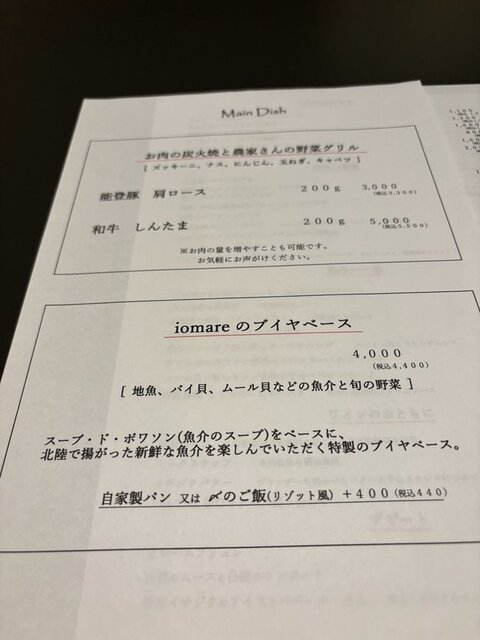 Main Dish
お肉の炭火焼と農家さんの野菜グリル
[ ズッキーニ、ナス、にんじん、玉ねぎ、キャベツ ]
能登豚 肩ロース 200g 3,000
(税込3,300)
和牛 しんたま 200g 5,000
(税込5,500)
※お肉の量を増やすことも可能です。
お気軽にお声がけください。
iomare のブイヤベース
4,000
(税込4,400)
[ 地魚、バイ貝、ムール貝などの魚介と旬の野菜 ]
スープ・ド・ポワソン(魚介のスープ)をベースに、
北陸で揚がった新鮮な魚介を楽しんでいただく特製のブイヤベース。
自家製パン 又は 〆のご飯(リゾット風) +400 (税込440)